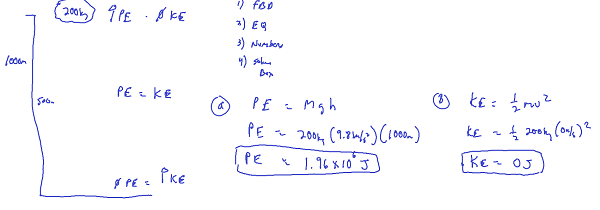 200kg ↑PE · ∅KE
1) FBD
2) EQ
3) Numbers
4) Solve
Box
1000m
500m
PE = KE
∅PE = ↑KE
(a) PE = mgh
PE = 200kg (9.8m/s²)(1000m)
PE = 1.96x10⁶ J
(b) KE = ½ mv²
KE = ½ 200kg (0m/s)²
KE = 0J